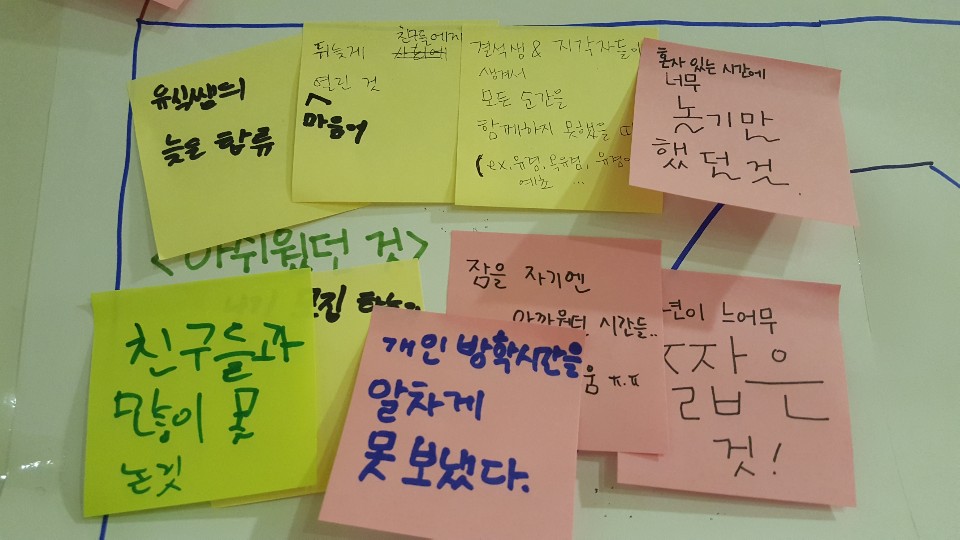 유식쌤의
늦은 합류
뒤늦게 친구들에게
사회에
열린 것
마음이
결석생 & 지각자들이
생겨서
모든 순간을
함께하지 못했을 때
(ex. 유경, 옥유경,
예초 ...
혼자 있는 시간에
너무
놀기만
했던 것.
<아쉬웠던 것>
친구들과
많이 못
논 것
개인 방학시간을
알차게
못 보냈다.
잠을 자기엔
아까웠던 시간들..
움 ㅠ.ㅠ
느어무
짧은
것!